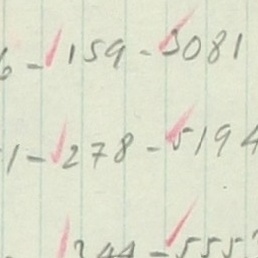 6-159-5081
1-278-5194
344-555